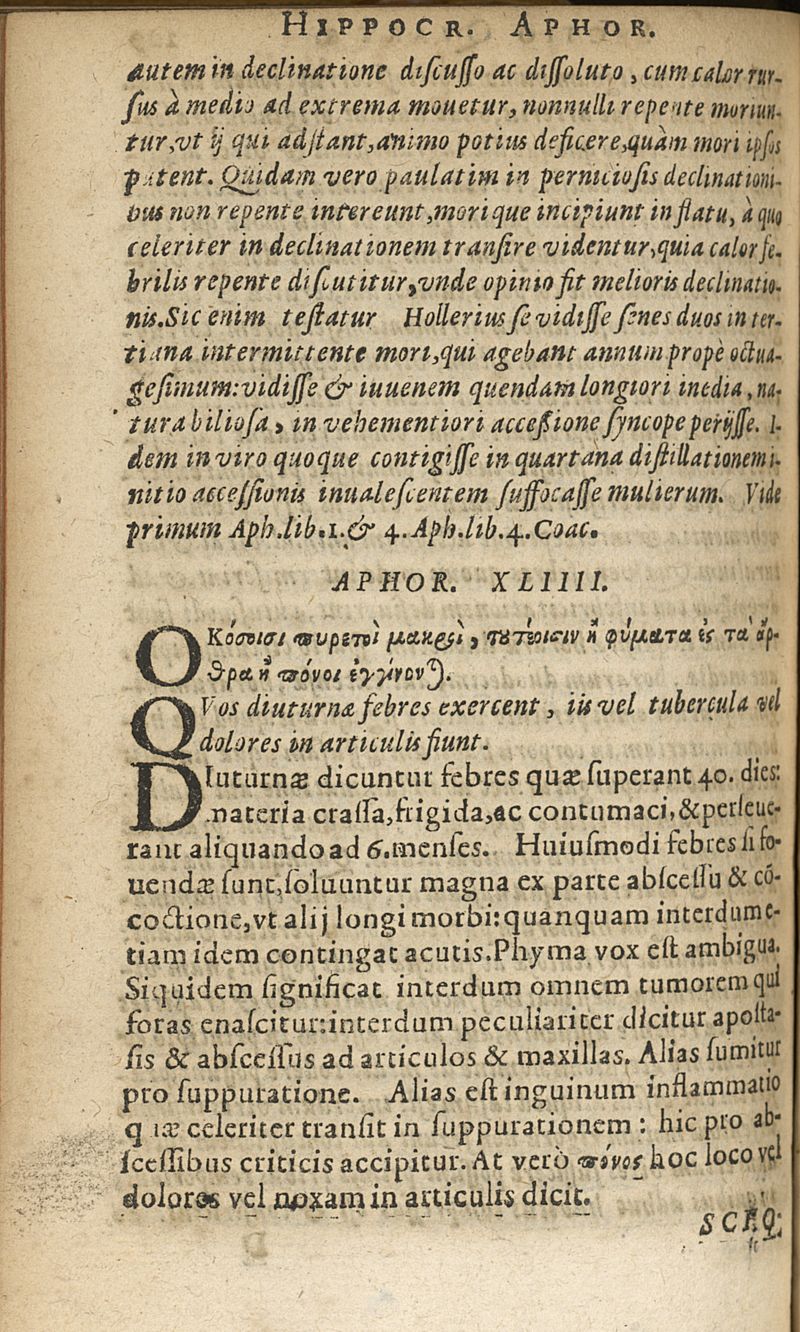 HIPPOCR. APHOR.
autem in declinatione discusso ac dissoluto, cum calor rur-
sus à medio ad extrema mouetur, nonnulli repente moriun-
tur, vt ij qui adstant, animo potius deficere, quàm mori ipsos
putent. Quidam vero paulatim in perniciosis declinationi-
bus non repente intereunt, morique incipiunt in statu, à quo
celeriter in declinationem transire videntur, quia calor fe-
brilis repente discutitur, vnde opinio fit melioris declinatio-
nis. Sic enim testatur Hollerius se vidisse senes duos in ter-
tiana intermittente mori, qui agebant annum propè octua-
gesimum: vidisse & iuuenem quendam longiori inedia, na-
tura biliosa, in vehementiori accessione syncope perijsse. I-
dem in viro quoque contigisse in quartana distillationem i-
nitio accessionis inualescentem suffocasse mulierum. Vide
primum Aph. lib. 1. & 4. Aph. lib. 4. Coac.
APHOR. XLIIII.
ΟΚόσοισι πυρετοὶ μακροὶ, τουτέοισιν ἢ φύματα ἐς τὰ ἄρ-
θρα ἢ πόνοι ἐγγίνονται.
QVos diuturnæ febres exercent, iis vel tubercula vel
dolores in articulis fiunt.
DIuturnæ dicuntur febres quæ superant 40. dies:
materia crassa, frigida, ac contumaci, & perseue-
rant aliquando ad 6. menses. Huiusmodi febres si fo-
uendæ sunt, soluuntur magna ex parte abscessu & cō-
coctione, vt alij longi morbi: quanquam interdum e-
tiam idem contingat acutis. Phyma vox est ambigua.
Siquidem significat interdum omnem tumorem qui
foras enascitur: interdum peculiariter dicitur aposta-
sis & abscessus ad articulos & maxillas. Alias sumitur
pro suppuratione. Alias est inguinum inflammatio
quæ celeriter transit in suppurationem: hic pro ab-
scessibus criticis accipitur. At verò πόνος hoc loco vel
dolores vel noxam in articulis dicit.